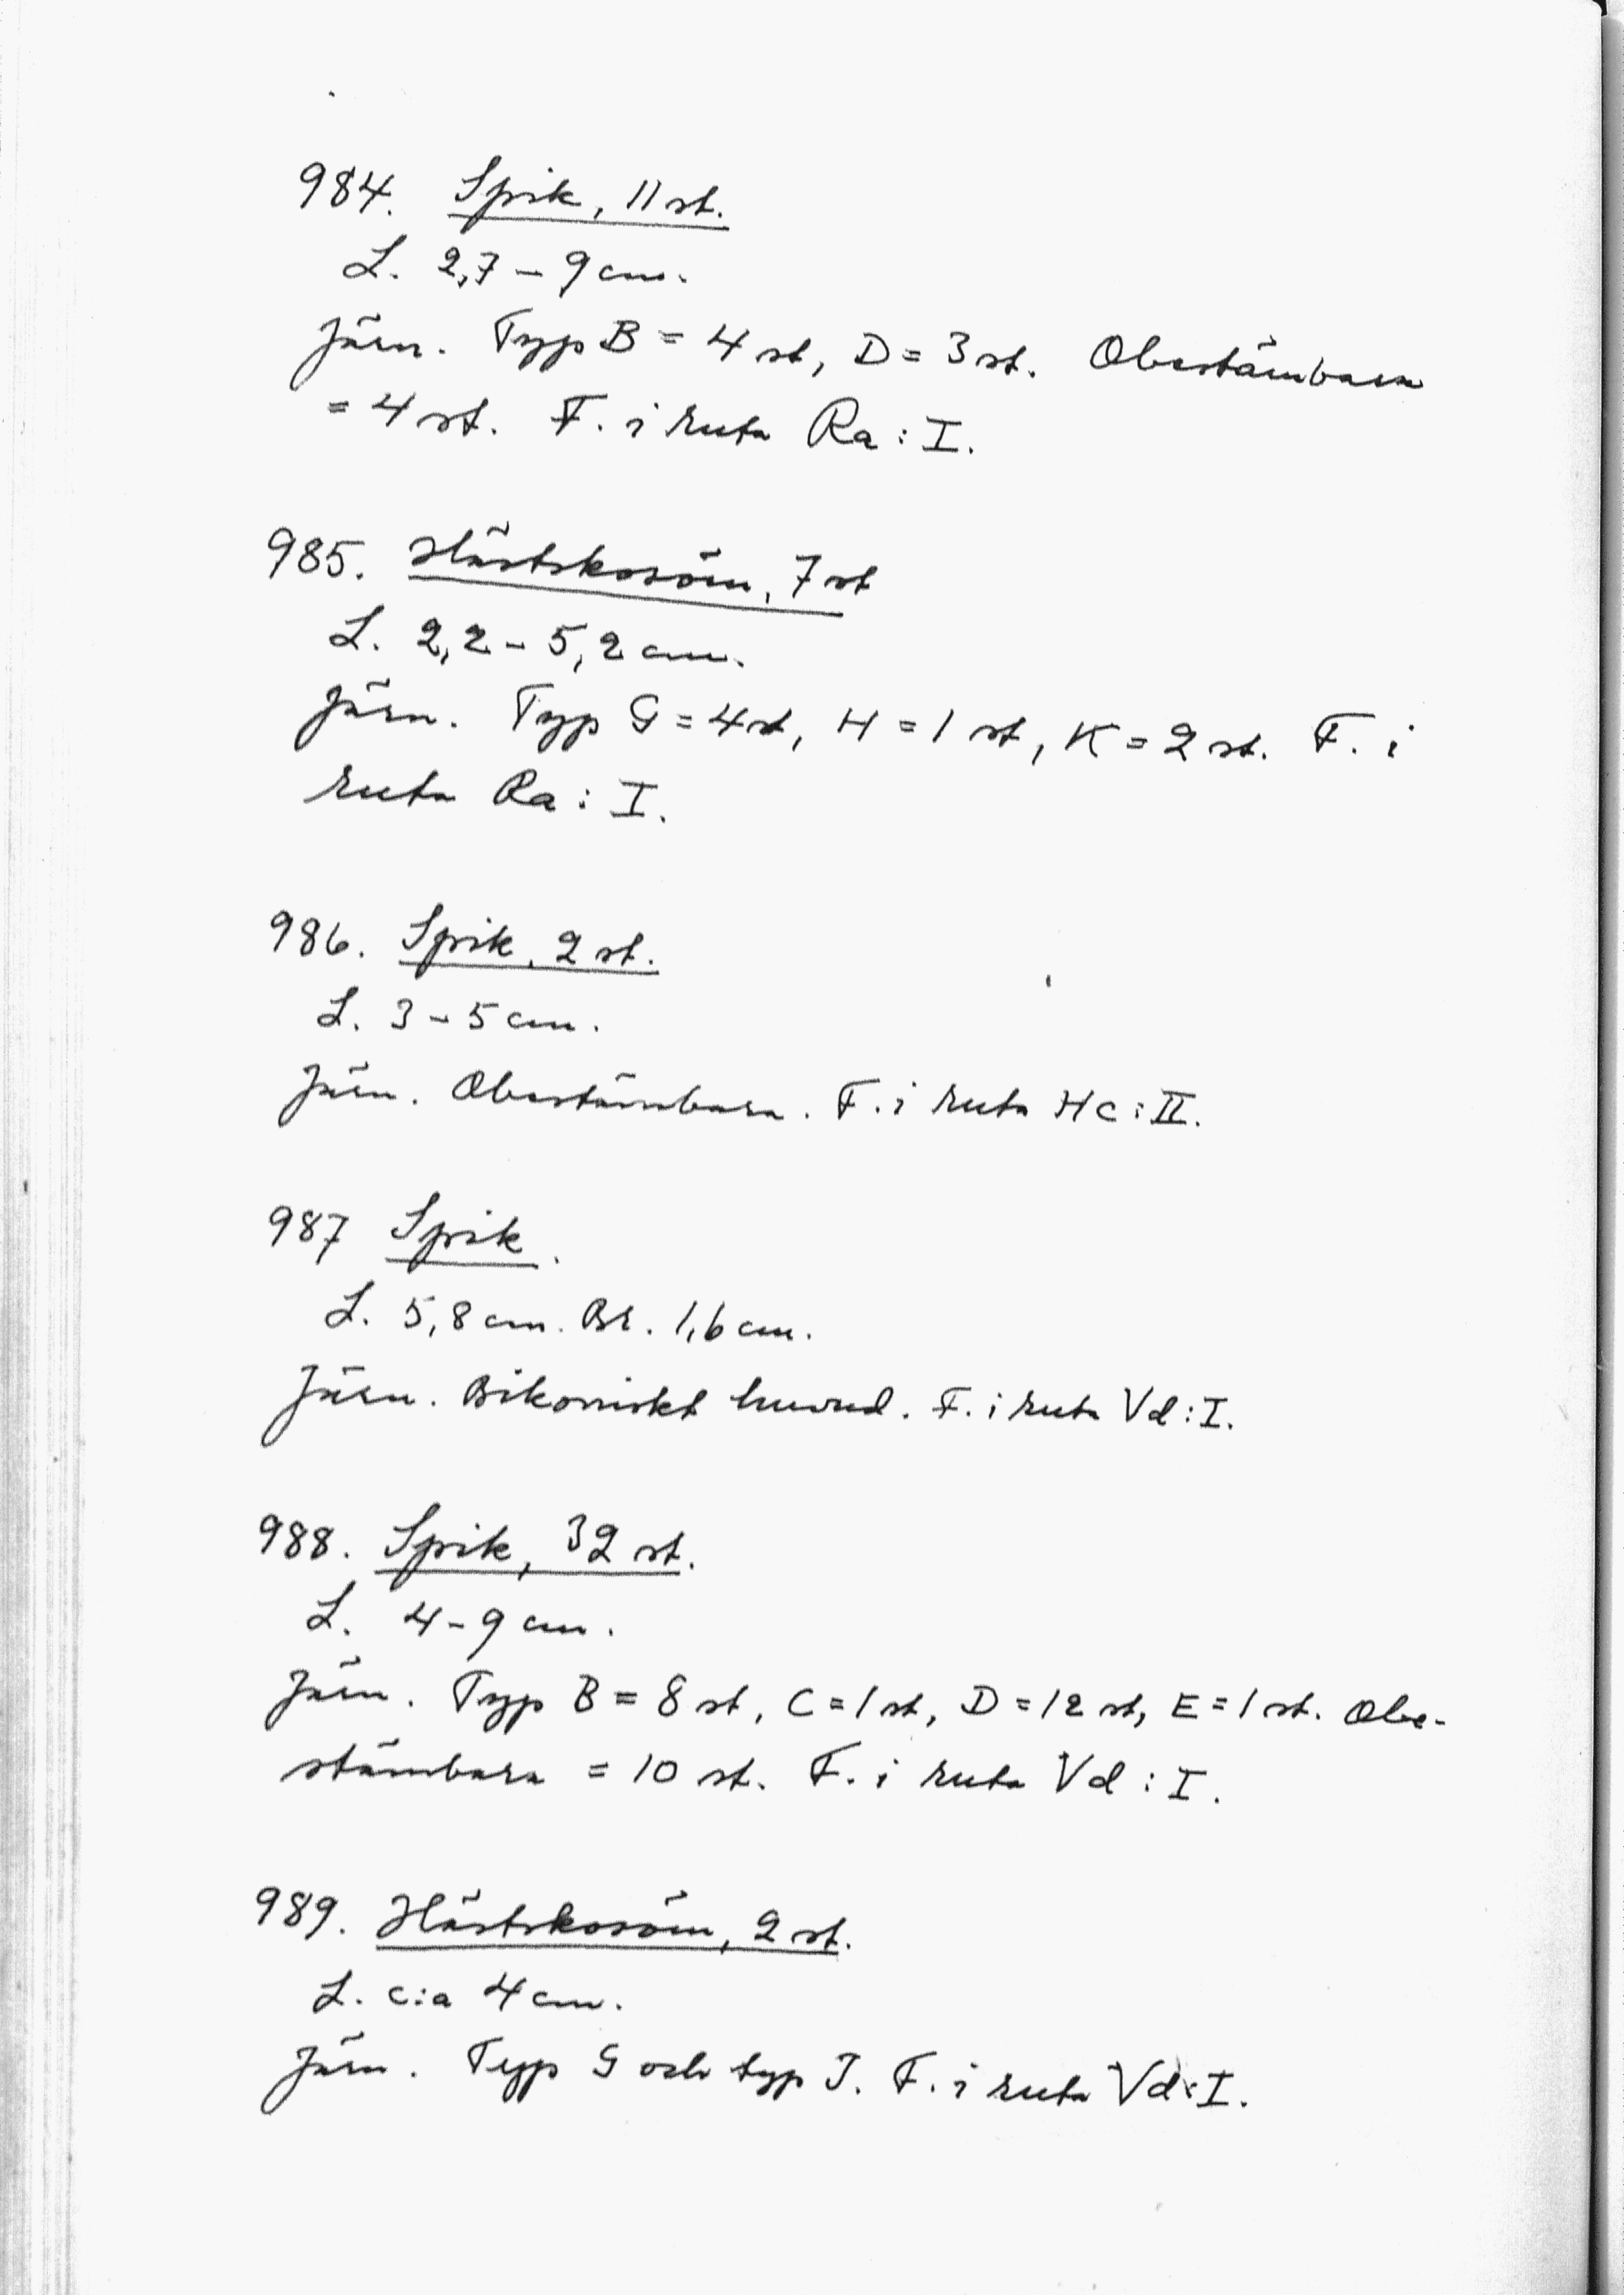 984. Spik, 11 st.
L. 2,7 – 9 cm.
Järn. Typ B = 4 st, D = 3 st. Obestämbara
= 4 st. F. i ruta Ra : I.
985. Hästskosöm, 7 st
L. 2,2 – 5,2 cm.
Järn. Typ G = 4 st, H = 1 st, K = 2 st. F. i
ruta Ra : I.
986. Spik, 2 st.
L. 3 – 5 cm.
Järn. Obestämbara. F. i ruta Hc : II.
987 Spik.
L. 5,8 cm. Br. 1,6 cm.
Järn. Bikoniskt huvud. F. i ruta Vd : I.
988. Spik, 32 st.
L. 4 – 9 cm.
Järn. Typ B = 8 st, C = 1 st, D = 12 st, E = 1 st. Obe-
stämbara = 10 st. F. i ruta Vd : I.
989. Hästskosöm, 2 st.
L. c:a 4 cm.
Järn. Typ G och typ J. F. i ruta Vd : I.